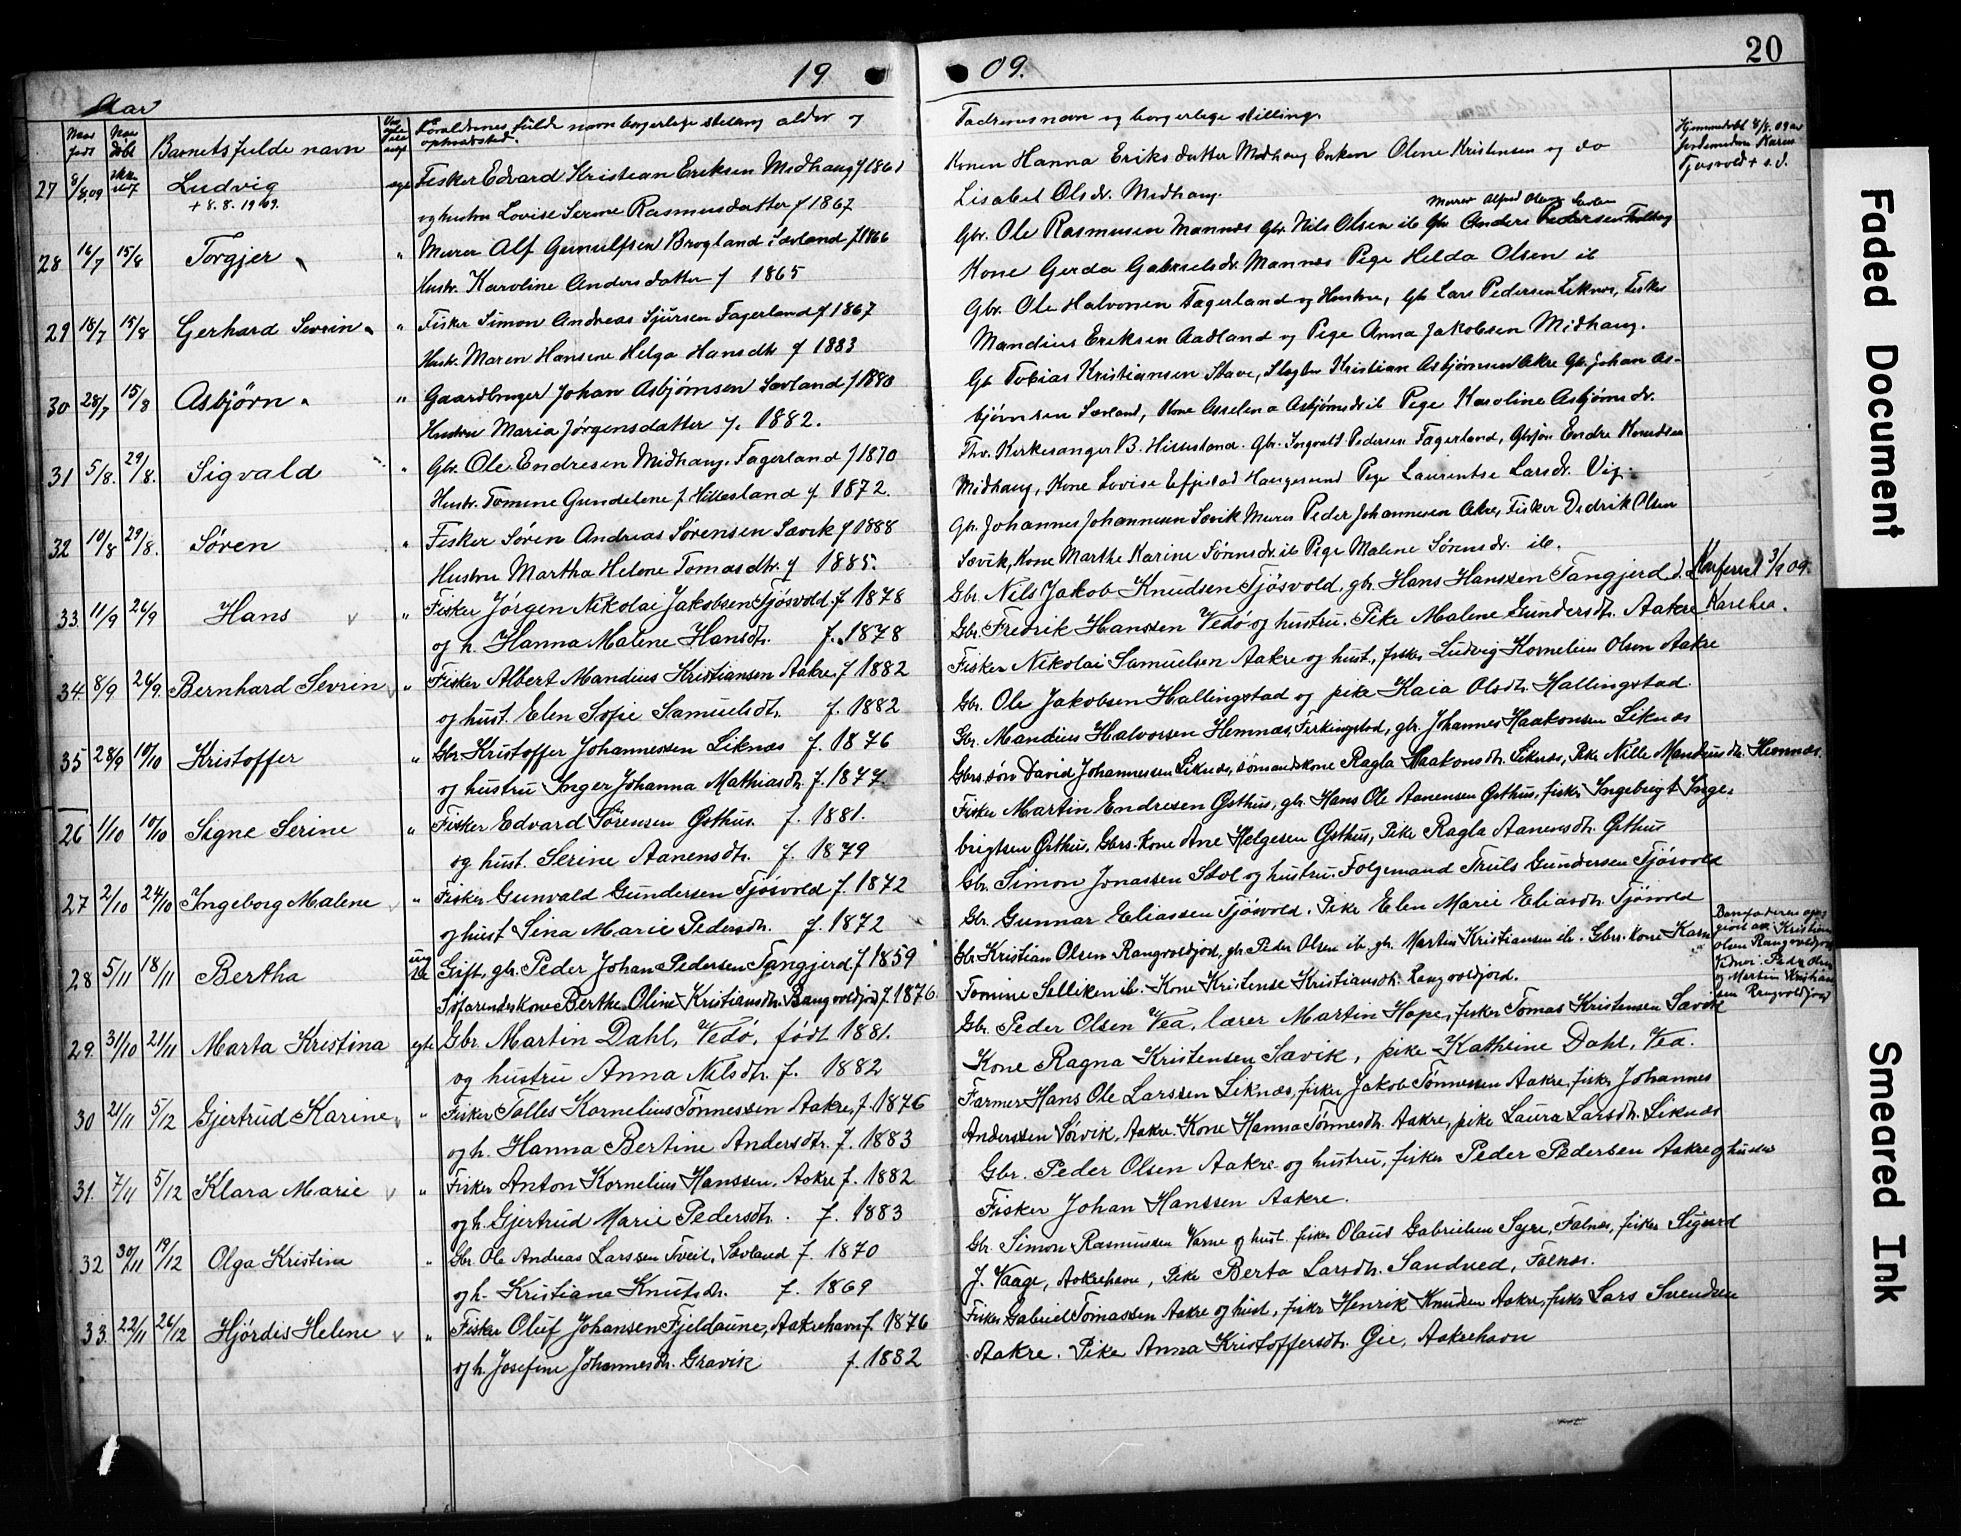 20
19 09.
Aar
Naar født Naar døbt Barnets fulde navn Forældrenes fulde navn borgerlege stilling alder og opholdsted.
Fadrenes navn og borgerlege stilling.
27 8/8 09 Ludvig egte Fisker Edvard Kristian Eriksen Midhaug f 1861
+ 8. 8. 1909.
og hustru Lovise Serine Rasmusdatter f 1867
Konen Hanna Eriksdatter Midhaug Enken Olene Kristensen og do
Lisabet Olsdr. Midhaug.
Hjemmedøbt 8/8. 09 av Jordemoderen Karen Tjøsvold + s. d.
28 16/7 15/8 Torgjer " Murer Alf Gunulfsen Brogland Sævland f 1866
Hustr. Karoline Andersdatter f 1865
Murer Alfred Olsen
Gbr. Ole Rasmusen Mannes Gbr. Nils Olsen ib Gbr Anders Pedersen
Kone Gerda Gabrielsdr. Mannes Pige Helda Olsen ib
29 18/7 15/8 Gerhard Sevrin " Fisker Simon Andreas Sjursen Fagerland f 1867
Hustr. Maren Hansine Helga Hansdtr f 1883
Gbr. Ole Halvorsen Fagerland og Hustru, Gbr Lars Pedersen Liknes, Fisker
Mandius Eriksen Aadland og Pige Anna Jakobsen Midhaug.
30 28/7 15/8 Asbjörn " Gaardbruger Johan Asbjørnsen Sævland f 1880
Hustru Maria Jørgensdatter f. 1882.
Gb Tobias Kristiansen Stave, Slagter Kristian Asbjørnsen Akre Gb. Johan As-
bjørnsen Sævland, Kone Asselena Asbjørnsdr ib Pige Karoline Asbjørnsdr.
31 5/8. 29/8. Sigvald " Gbr. Ole Endresen Midhaug. Fagerland f 1870
Hustr. Tomine Gundelene f Hillesland f 1872.
Thv. Kirkesanger B. Hillesland. Gbr. Ingvald Pedersen Fagerland, Gbrsøn Endre Knudsen
Midhaug, Kone Lovise Effestad Haugesund Pige Laurentse Larsdr. Vig.
32 10/8 29/8. Søren " Fisker Søren Andreas Sørensen Sævik f 1888
Hustru Martha Helene Tomasdtr. f 1885.
Gbr. Johannes Johannesen Sævik Murer Peder Johannesen Akre, Fisker Didrik Olsen
Sævik, Kone Marthe Karine Sørensdr. ib Pige Malene Sørensdr. ib.
33 11/9 26/9 Hans " Fisker Jörgen Nikolai Jakobsen Tjösvold f. 1878
og h. Hanna Malene Hansdt. f. 1878
Gbr. Nils Jakob Knudsen Tjösvold, gbr. Hans Hanssen Tangjerd
Gbr. Fredrik Hanssen Vedö og hustru. Pike Malene Gundersdt. Aakre
Konferert 3/9 09.
34. 8/9 26/9. Bernhard Sevrin " Fisker Albert Mandius Kristiansen Aakre f 1882
og hust. Elen Sofie Samuelsdt. f. 1882
Fisker Nikolai Samuelsen Aakre og hust., fisker Ludvig Kornelius Olsen Aakre
Gbr. Ole Jakobsen Hallingstad og pike Kaia Olsdt. Hallingstad.
35 28/9 10/10 Kristoffer " Gbr Kristoffer Johannessen Liknes f. 1876
og hustru Inger Johanna Mathiasdt. f. 1877
Gbr. Mandius Halvorsen Hemnæs, Ferkingstad, gbr. Johannes Haakonsen Liknæs
Gbrs.sön David Johannessen Liknæs, sömandskone Ragla Haakonsdt. Liknæs, Pike Nille Mandiusdt. Hemnæs.
26 1/10 10/10 Signe Serine " Fisker Edvard Sörensen Østhus. f. 1881.
og hust. Serine Aanensdt. f. 1879
Fisker Martin Endresen Østhus, gbr. Hans Ole Aanensen Østhus, fisker Ingebrigt Inge-
brigtsen Østhus, Gbrs. kone Ane Helgesen Østhus, Pike Ragla Aanensdt. Østhus
27 2/10 24/10 Ingeborg Malene " Fisker Gunvald Gundersen Tjösvold f. 1872
og hust Sina Marie Pedersdt. f. 1872
Gbr. Simon Jonassen Stol og hustru. Folgemand Truls Gundersen Tjösvold
Gbr. Gunnar Eliassen Tjösvold. Pike Elen Marie Eliasdt. Tjösvold
28 5/11 18/11 Bertha uegte Gift, gbr. Peder Johan Pedersen Tangjerd f 1859
Sjöfarendeskone Berthe Oline Kristiansdt. Rangvoldjord f. 1876.
Gbr Kristian Olsen Rangvoldjord, gbr Peder Olsen ib, gbr. Martin Kristiansen ib. Gbrs. kone Karn
Tomine Selliken ib. Kone Kristense Kristiansdt. Rangvoldjord.
Barnefaderen opgivet av Kristian Olsen Rangvoldjord Vidner: Peder Olsen og Martin Kristiansen Rangvoldjord
29. 31/10 21/11 Marta Kristina egte Gbr. Martin Dahl, Vedö, födt 1881.
og hustru Anna Nilsdt. f. 1882
Gbr. Peder Olsen Vea, lærer Martin Hope, fisker Tomas Kristensen Sævik
Kone Ragna Kristensen Sævik, pike Kathrine Dahl, Vea.
30 21/11 5/12 Gjertrud Karine " Fisker Tolles Kornelius Tönnessen Aakre, f. 1876
og h. Hanna Bertine Andersdt. f. 1883
Farmer Hans Ole Larssen Liknæs, fisker Jakob Tönnessen Aakre, fisker Johannes
Anderssen Sörvik, Aakre. Kone Hanna Tönnesdt. Aakre, pike Laura Larsdt. Liknæs
31. 7/11 5/12 Klara Marie " Fisker Anton Kornelius Hanssen, Aakre f. 1882
og h. Gjertrud Marie Pedersdt. f. 1883
Gbr. Peder Olsen Aakre og hustru, fisker Peder Pedersen Aakre og hustru
Fisker Johan Hanssen Aakre.
32 30/11 19/12 Olga Kristine " Gbr. Ole Andreas Larssen Tveit, Sævland f. 1870
og h. Kristiane Knutsdt. f. 1869
Gbr. Simon Rasmussen Varne og hust. fisker Olaus Gabrielsen Syre, Falnes, fisker Sigurd
J. Vaage, Aakrehavn, Pike Berta Larsdt. Sandved, Falnes.
33. 22/11 26/12 Hjördis Helene " Fisker Oluf Johansen Fjeldaune, Aakrehavn f. 1876
og h. Josefine Johannesdt. Gravik f. 1882
Fisker Gabriel Tomassen Aakre og hust, fisker Henrik Knudsen Aakre, fisker Lars Svendsen
Aakre. Pike Anna Kristoffersdt. Gie, Aakrehavn
Faded Document
Smeared Ink